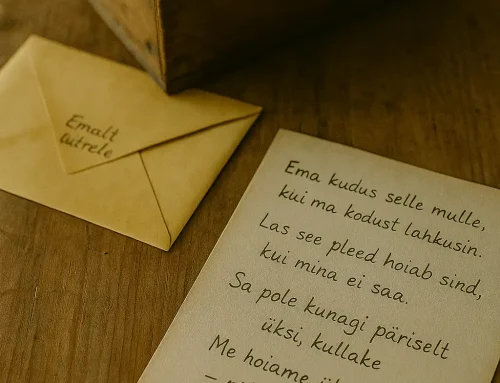 Emalt
tütrele
Ema kudus selle mulle,
kui ma kodust lahkusin.
Las see pleed hoiab sind,
kui mina ei saa.
Sa pole kunagi päriselt
üksi, kullake
Me hoiame